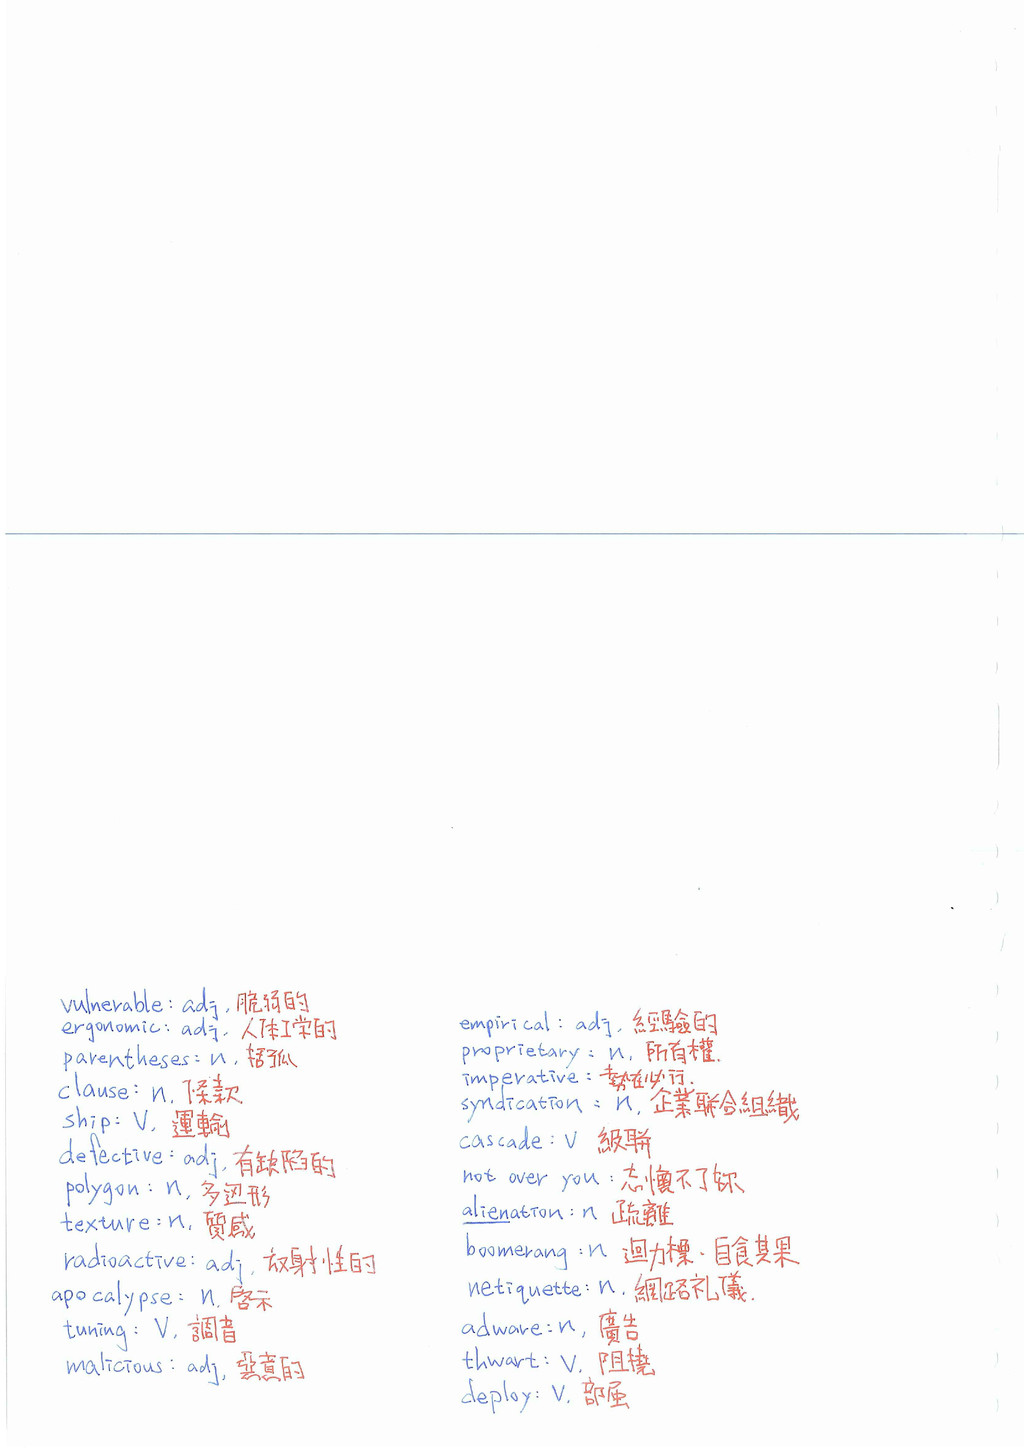 vulnerable: adj, 脆弱的
ergonomic: adj, 人体工学的
parentheses: n, 括弧
clause: n, 條款
ship: V, 運輸
defective: adj, 有缺陷的
polygon: n, 多边形
texture: n, 質感
radioactive: adj, 放射性的
apocalypse: n, 啓示
tuning: V, 調音
malicious: adj, 惡意的
empirical: adj, 經驗的
proprietary: n, 所有權.
imperative: 勢在必行.
syndication: n, 企業聯合組織
cascade: V 級聯
not over you: 忘懷不了妳
alienation: n 疏離
boomerang: n 迴力標、自食其果
netiquette: n, 網路礼儀.
adware: n, 廣告
thwart: V, 阻撓
deploy: V, 部屈